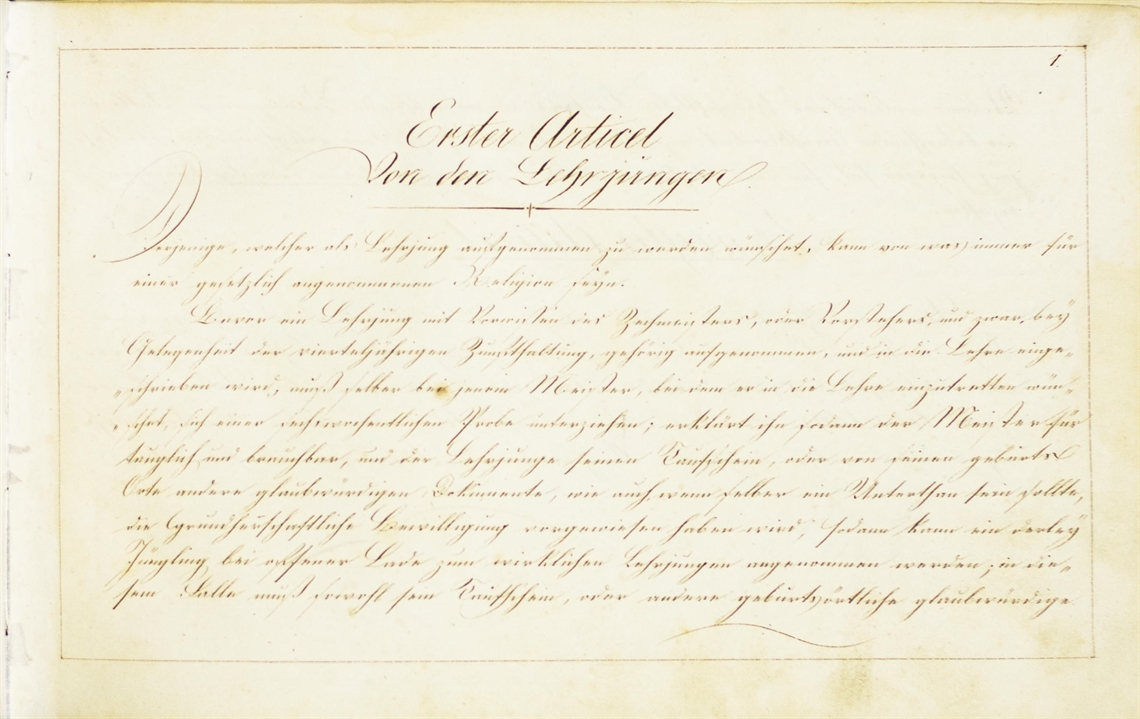 1.
Erster Articel
Von den Lehrjungen
Derjenige, welcher als Lehrjung aufgenommen zu werden wünschet, kann von was immer für
einer gesetzlich angenommenen Religion seyn.
Bevor ein Lehrjung mit Vorwissen des Zechmeisters, oder Vorstehers, und zwar, bey
Gelegenheit der vierteljährigen Zunfthaltung, gehörig aufgenommen, und in die Lehre einge„
„schrieben wird, muß selber bei jenem Meister, bei dem er in die Lehre einzutretten wün„
„schet, sich einer sechswochentlichen Probe unterziehen; erklärt ihn sodann der Meister für
tauglich und brauchbar, und der Lehrjunge seinen Taufschein, oder von seinen geburts
Orte andere glaubwürdigen Dokumente, wie auch, wenn selber ein Unterthan sein sollte,
die Grundherschaftliche Bewilligung vorgewiesen haben wird, sodann kann ein derley
Jüngling bei offener Lade zum wirklichen Lehrjungen angenommen werden; in die„
sem Falle muß sowohl sein Taufschein, oder andere geburtsörtliche glaubwürdige